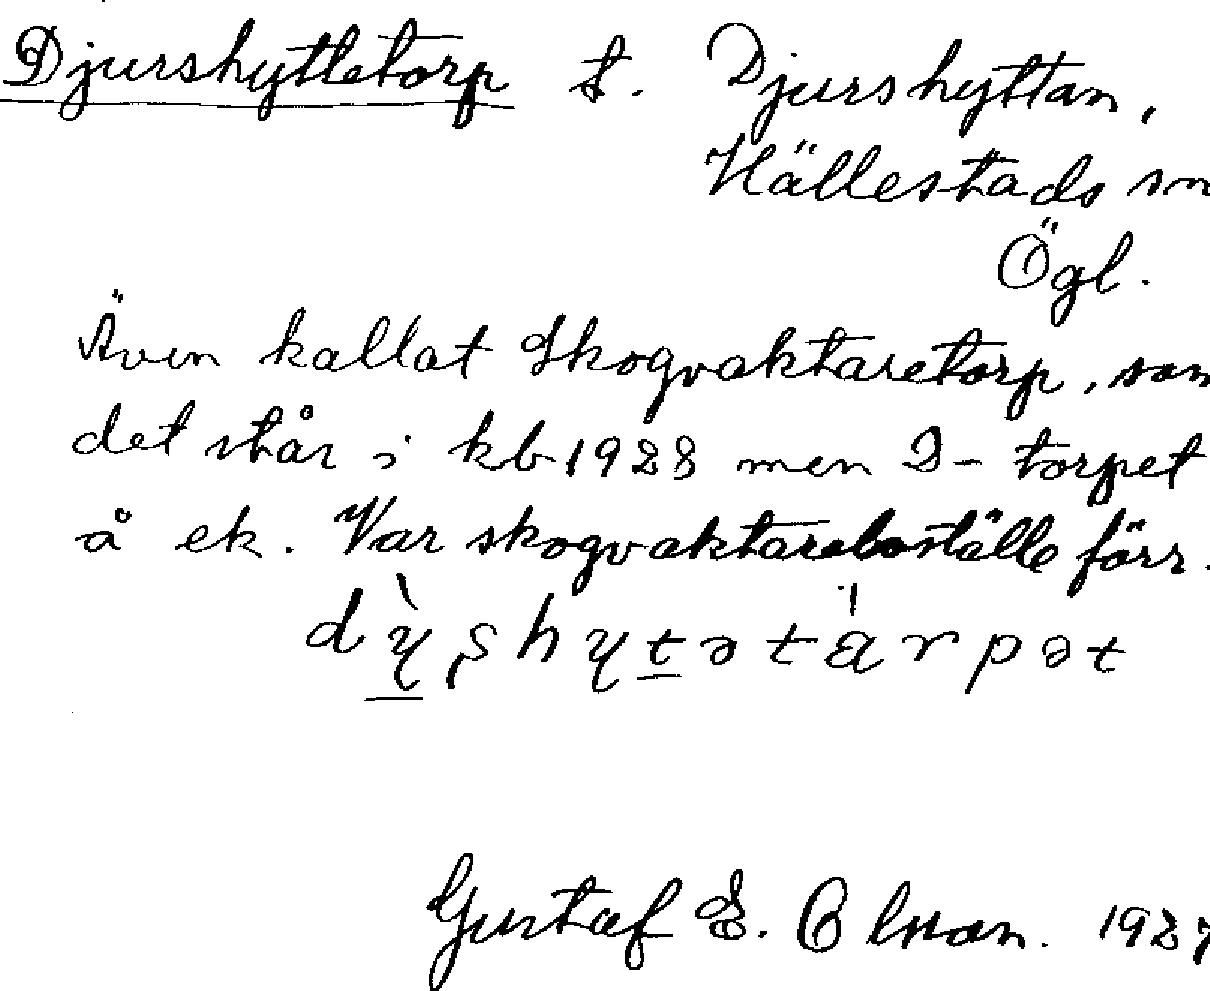 Djurshyttetorp t. Djurshyttan,
Hällestads sn
Ögl.
Även kallat Skogvaktaretorp, som
det står i kb 1928 men D- torpet
å ek. Var skogvaktareboställe förr.
Gustaf E. Olsson. 192